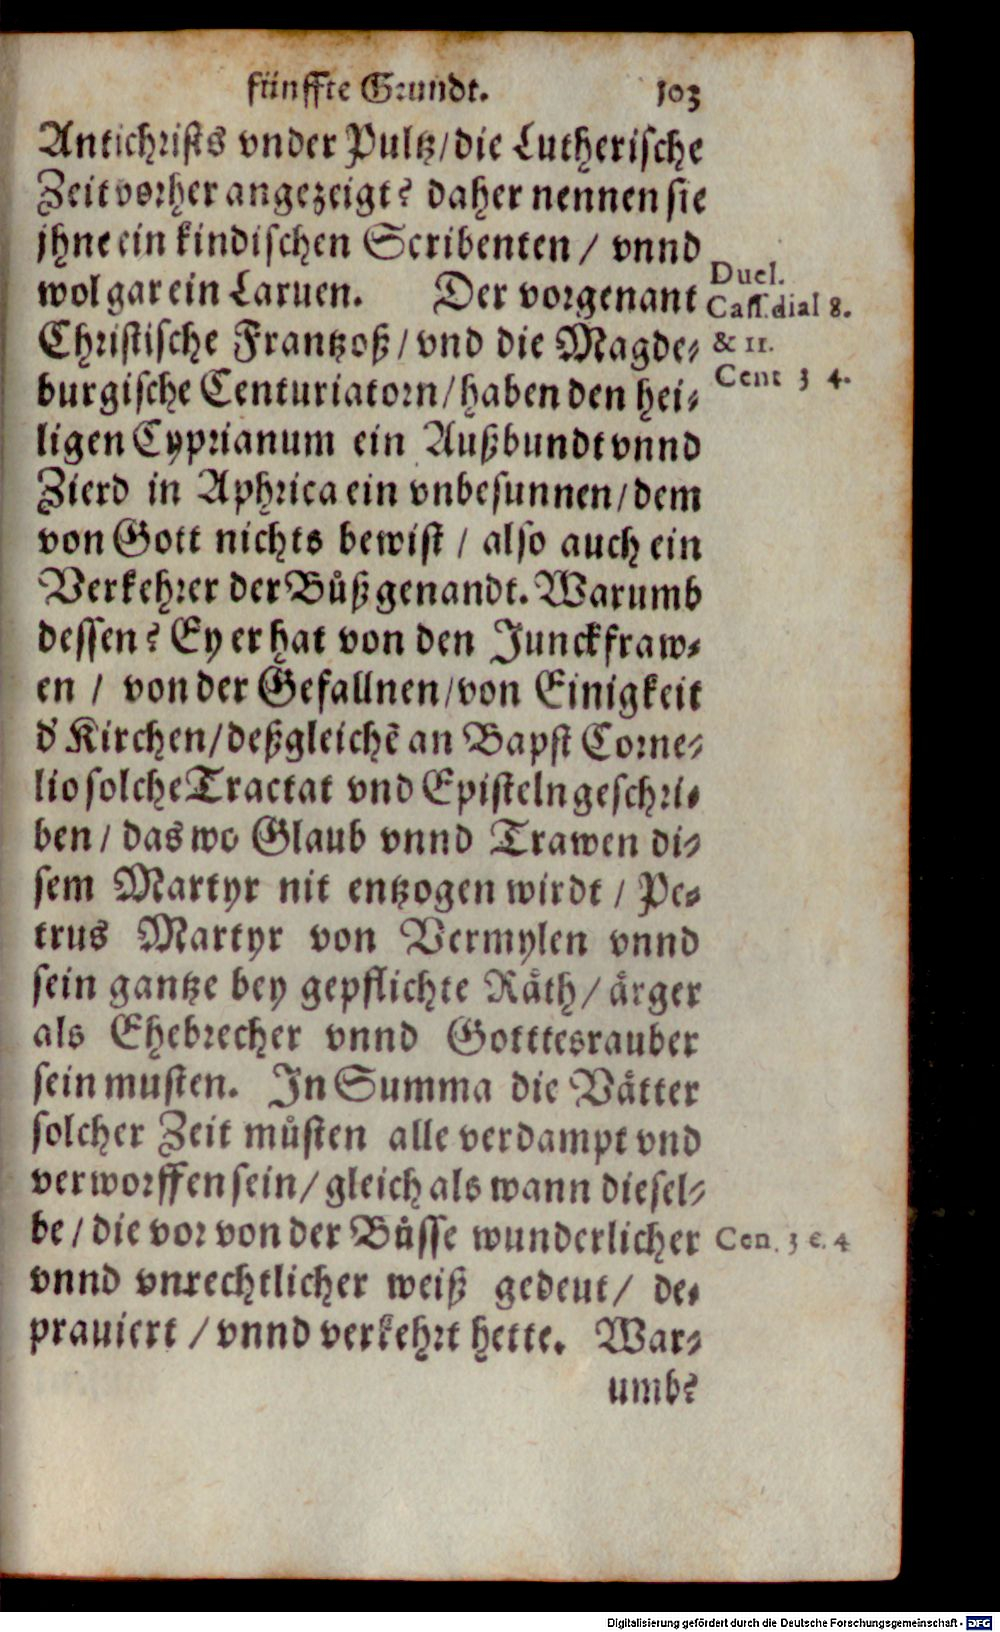 fünffte Grundt. 103
Antichrists vnder Pultz/die Lutherische
Zeit vorher angezeigt? daher nennen sie
jhne ein kindischen Scribenten / vnnd
wol gar ein Laruen. Der vorgenant
Duel.
Cass. dial 8.
Christische Frantzoß/vnd die Magde-
& 11.
burgische Centuriatorn/haben den hei-
Cent 3 4.
ligen Cyprianum ein Außbundt vnnd
Zierd in Aphrica ein vnbesunnen/dem
von Gott nichts bewist / also auch ein
Verkehrer der Bůß genandt. Warumb
dessen? Ey er hat von den Junckfraw-
en / von der Gefallnen/von Einigkeit
d' Kirchen/deßgleichẽ an Bapst Corne-
lio solche Tractat vnd Episteln geschri-
ben / das wo Glaub vnnd Trawen di-
sem Martyr nit entzogen wirdt / Pe-
trus Martyr von Vermylen vnnd
sein gantze bey gepflichte Räth/ ärger
als Ehebrecher vnnd Gotttesrauber
sein musten. In Summa die Vätter
solcher Zeit můsten alle verdampt vnd
verworffen sein/ gleich als wann diesel-
be / die vor von der Bůsse wunderlicher
Cen. 3 c. 4
vnnd vnrechtlicher weiß gedeut/ de-
prauiert / vnnd verkehrt hette. War-
umb?
Digitalisierung gefördert durch die Deutsche Forschungsgemeinschaft - DFG